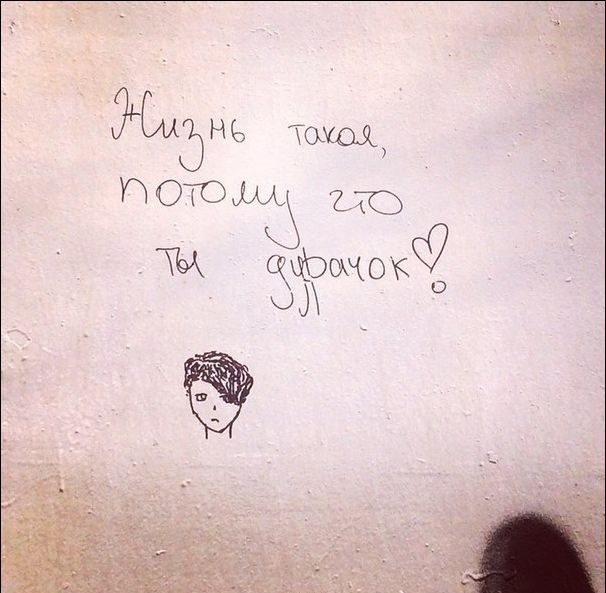 Жизнь такая,
потому что
ты дурачок!